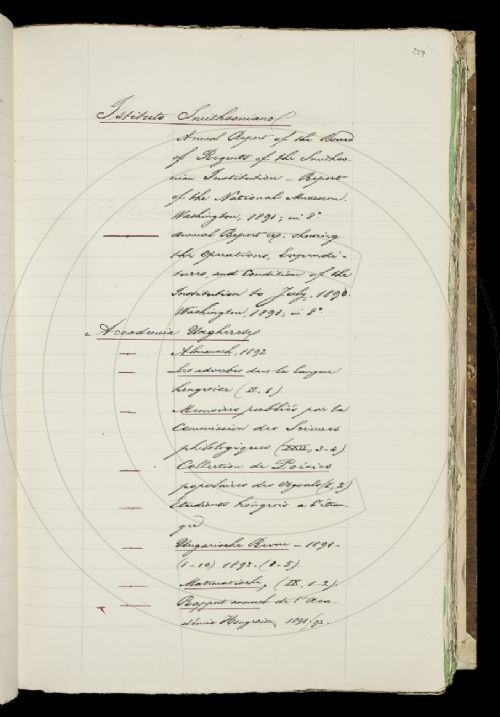 259
Istituto Smithsoniano
Annual Report of the Board
of Regents of the Smithso-
nian Institution – Report
of the National Museum.
Washington, 1891; in 8°
Annual Report ecc. showing
the Operations, Expendi-
tures, and Condition of the
Institution to July, 1890.
Washington, 1891; in 8°
Accademia Ungherese
Almanach, 1892
Les adverbes dans la langue
hongroise (II, 1).
Memoires publiés par la
Commission des Sciences
philologiques (XXII, 3-4)
Collection de Poésies
populaires des Vogouls (I, 2)
Etudiants hongrois a l'étran-
ger
Ungarische Revue – 1891-
(1-10) 1892 - (1-5).
Mathematische, (IX, 1-2).
Rapport annuel de l'Aca-
démie Hongroise, 1891/92.